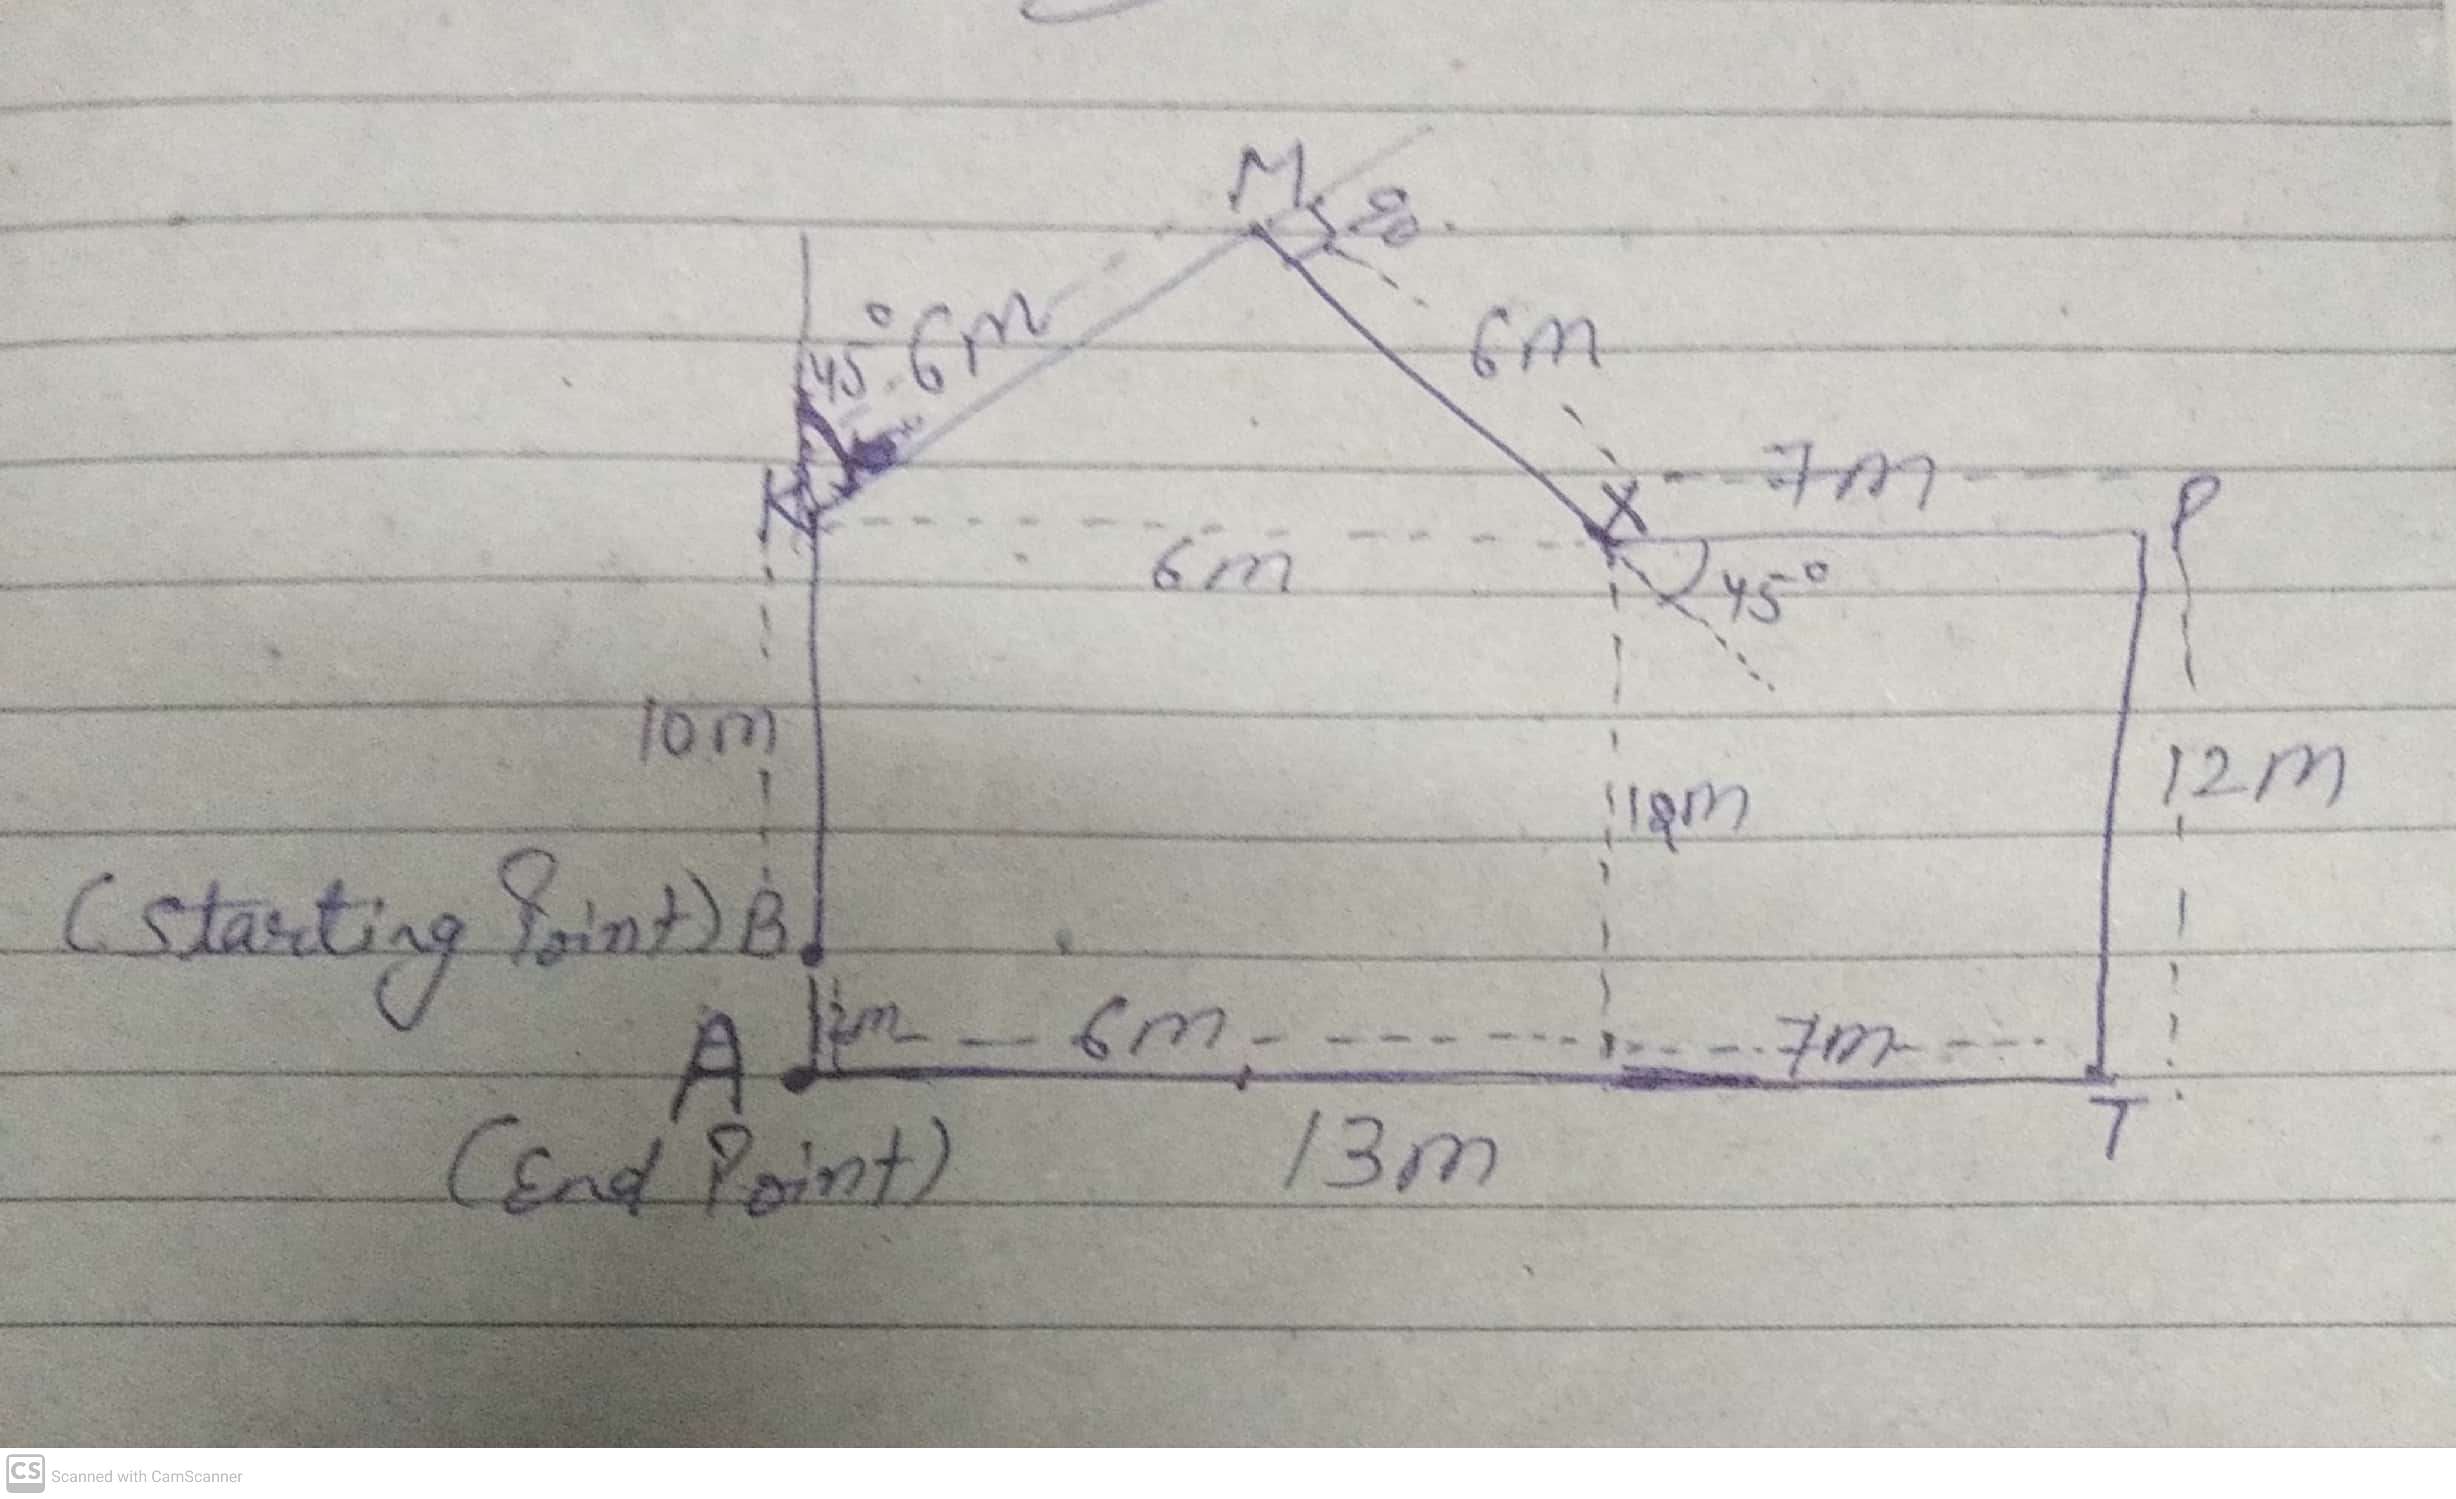 M
90
45°
6m
6m
K
X
7m
P
6m
45°
10m
12m
(Starting Point) B
2m
6m
7m
A
(End Point)
13m
T
CS Scanned with CamScanner